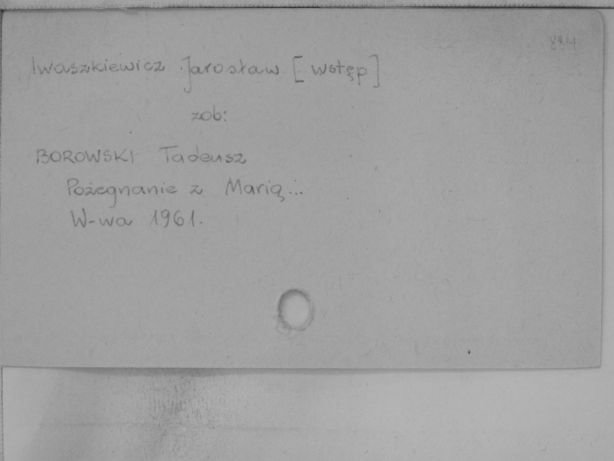 Iwaszkiewicz Jarosław [wstęp]
zob:
BOROWSKI Tadeusz
Pożegnanie z Marią...
W-wa 1961.